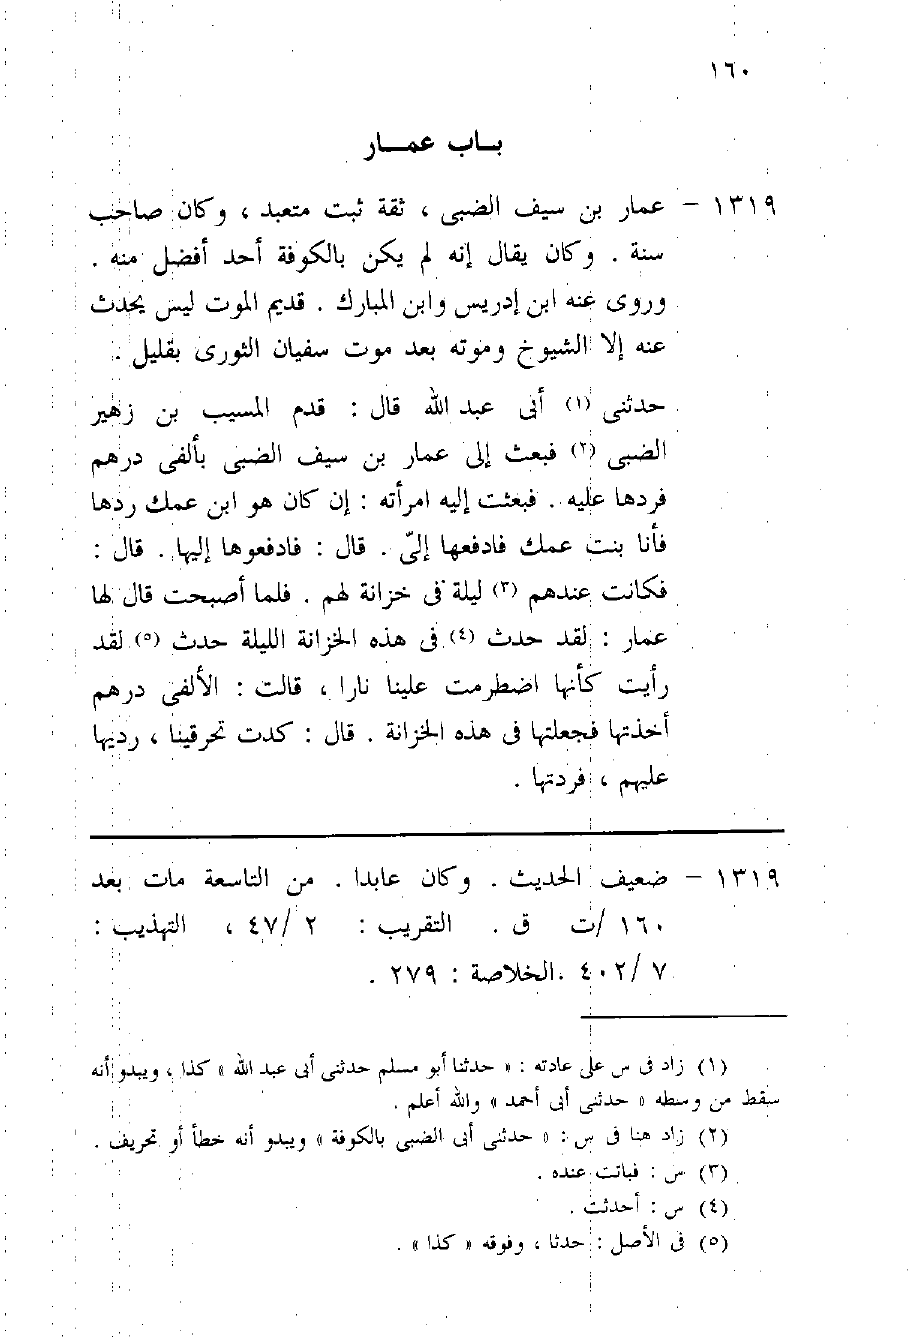 ١٦٠
بـاب عمـار
١٣١٩ – عمار بن سيف الضبى ، ثقة ثبت متعبد ، وكان صاحب
سنة . وكان يقال إنه لم يكن بالكوفة أحد أفضل منه .
وروى عنه ابن إدريس وابن المبارك . قديم الموت ليس يحدث
عنه إلا الشيوخ وموته بعد موت سفيان الثورى بقليل .
حدثنى (١) أبى عبد الله قال : قدم المسيب بن زهير
الضبى (٢) فبعث إلى عمار بن سيف الضبى بألفى درهم
فردها عليه . فبعثت إليه امرأته : إن كان هو ابن عمك ردها
فأنا بنت عمك فادفعها إلىّ . قال : فادفعوها إليها . قال :
فكانت عندهم (٣) ليلة فى خزانة لهم . فلما أصبحت قال لها
عمار : لقد حدث (٤) فى هذه الخزانة الليلة حدث (٥) لقد
رأيت كأنها اضطرمت علينا نارا ، قالت : الألفى درهم
أخذتها فجعلتها فى هذه الخزانة . قال : كدت تحرقينا ، رديها
عليهم ، فردتها .
١٣١٩ – ضعيف الحديث . وكان عابدا . من التاسعة مات بعد
١٦٠ /ت ق . التقريب : ٢ /٤٧ ، التهذيب :
٧ /٤٠٢ .الخلاصة : ٢٧٩ .
(١) زاد فى س على عادته : « حدثنا أبو مسلم حدثنى أبى عبد الله » كذا ، ويبدو أنه
سقط من وسطه « حدثنى أبى أحمد » والله أعلم .
(٢) زاد هنا فى س : « حدثنى أبى الضبى بالكوفة » ويبدو أنه خطأ أو تحريف .
(٣) س : فباتت عنده .
(٤) س : أحدثت .
(٥) فى الأصل : حدثا ، وفوقه « كذا » .